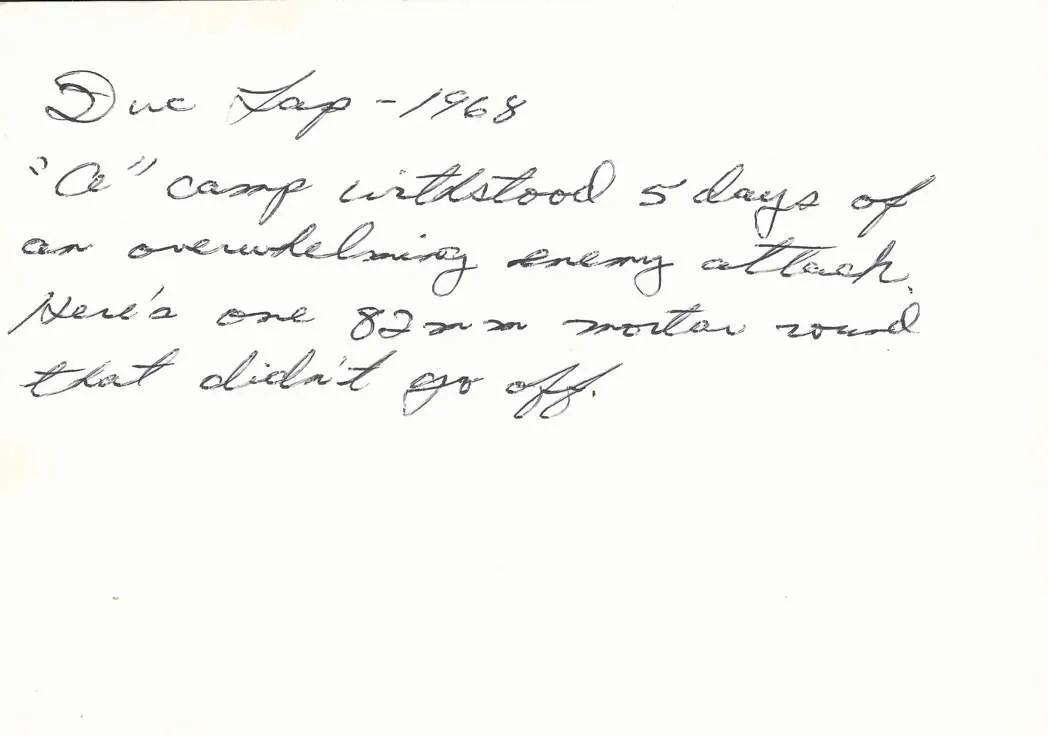 Duc Lap - 1968
"A" camp withstood 5 days of
an overwhelming enemy attack.
Here's one 82mm mortar round
that didn't go off.